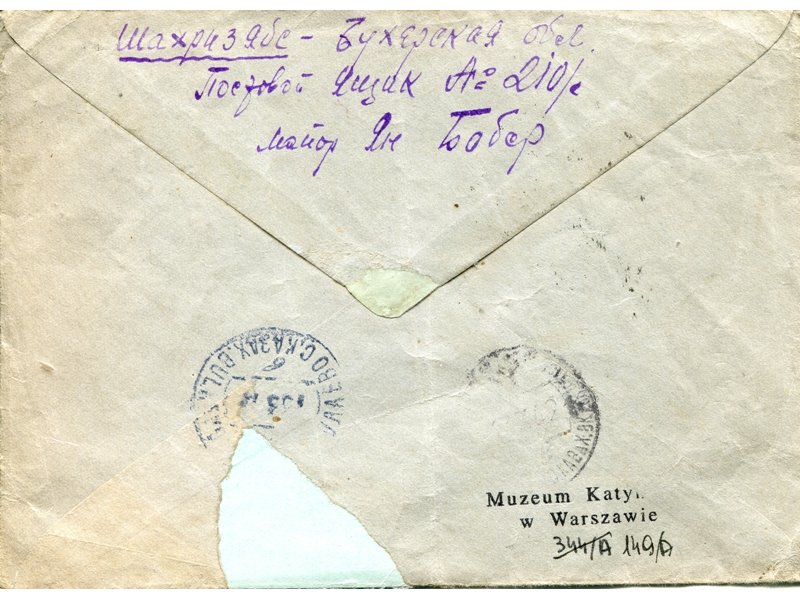 Шахризябс - Бухарская обл.
Почтовой Ящик № 210/с
майор Ян Бобер
БУЛАЕВО С.КАЗАХ. BUL
6
Muzeum Katy
w Warszawie
344/A 149/A